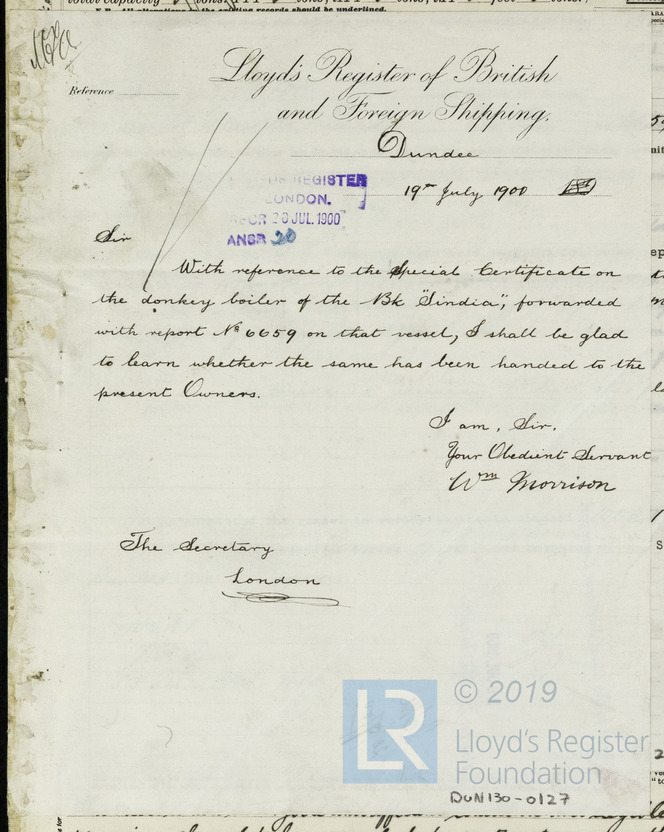 total capacity
N.B. All alterations in the existing records should be underlined.
Reference
Lloyd's Register of British
and Foreign Shipping.
Dundee
19th July 1900
REGISTER
LONDON.
RECR 20 JUL. 1900
ANSR 20
Sir
With reference to the Special Certificate on
the donkey boiler of the Bk "Sindia", forwarded
with report No 6659 on that vessel, I shall be glad
to learn whether the same has been handed to the
present Owners.
I am, Sir.
Your Obedient Servant
Wm Morrison
The Secretary
London
LR
© 2019
Lloyd's Register
Foundation
DUN130-0127